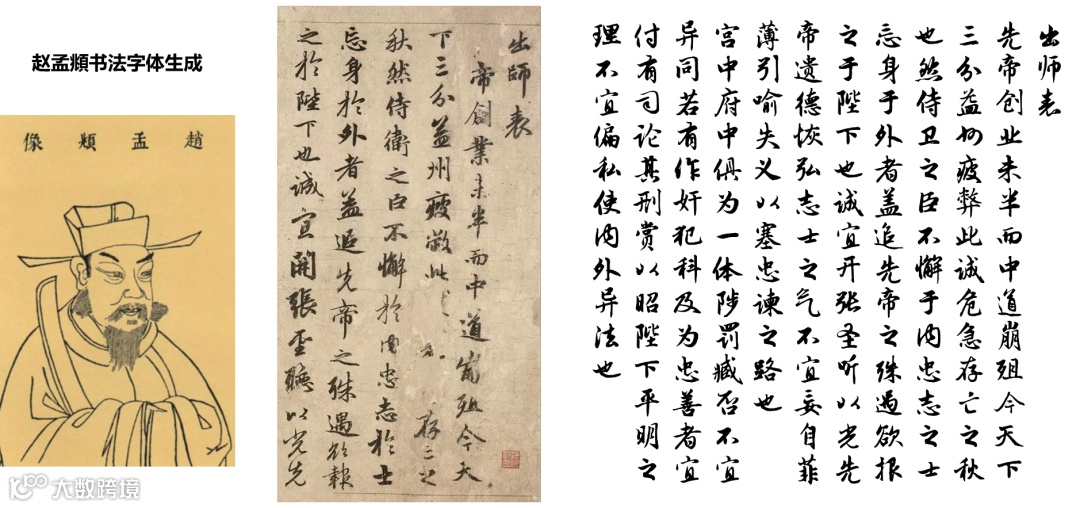 赵孟頫书法字体生成
趙孟頫像
出師表
帝創業未半而中道崩殂今天
下三分益州疲敝此存亡之
秋然侍衛之臣不懈於內忠志於士
忘身於外者蓋追先帝之殊遇欲報
之於陛下也誠宜開張聖聽以光先
出师表
先帝创业未半而中道崩殂今天下
三分益州疲弊此诚危急存亡之秋
也然侍卫之臣不懈于内忠志之士
忘身于外者盖追先帝之殊遇欲报
之于陛下也诚宜开张圣听以光先
帝遗德恢弘志士之气不宜妄自菲
薄引喻失义以塞忠谏之路也
宫中府中俱为一体陟罚臧否不宜
异同若有作奸犯科及为忠善者宜
付有司论其刑赏以昭陛下平明之
理不宜偏私使内外异法也
大数跨境